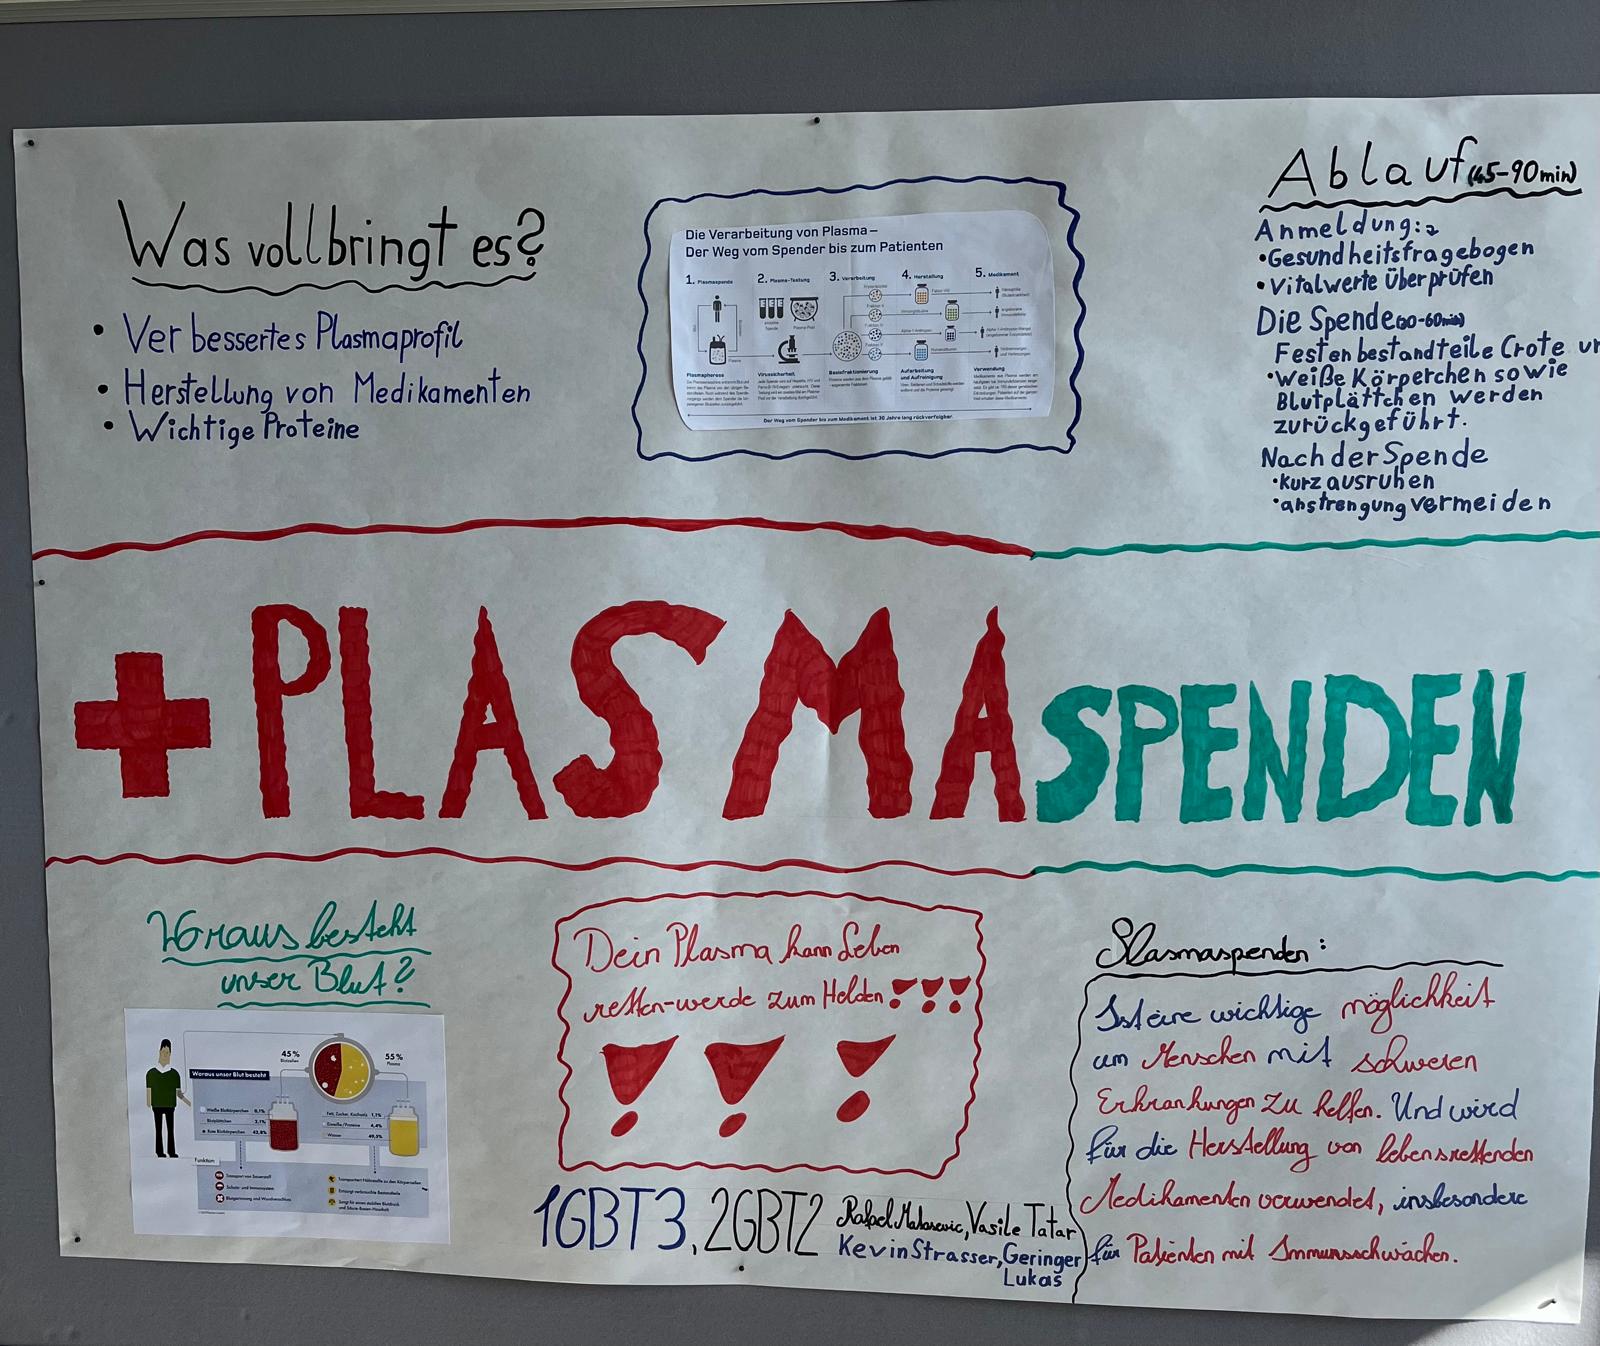 Was vollbringt es?
• Verbessertes Plasmaprofil
• Herstellung von Medikamenten
• Wichtige Proteine
Die Verarbeitung von Plasma –
Der Weg vom Spender bis zum Patienten
1. Plasmaspende
2. Plasma-Testung
3. Verarbeitung
4. Herstellung
5. Medikament
Plasmapherese
Virussicherheit
Basisfraktionierung
Aufarbeitung
und Aufreinigung
Verwendung
Der Weg vom Spender bis zum Medikament ist 30 Jahre lang rückverfolgbar.
Ablauf (45-90min)
Anmeldung:
•Gesundheitsfragebogen
•Vitalwerte Überprüfen
Die Spende (30-60min)
Festen bestandteile (rote un
•weiße Körperchen sowie
Blutplättchen werden
zurückgeführt.
Nach der Spende
•kurz ausruhen
•anstrengung vermeiden
+PLASMASPENDEN
Woraus besteht
unser Blut?
45 %
Blutzellen
55 %
Plasma
Woraus unser Blut besteht
Weiße Blutkörperchen 0,1%
Blutplättchen 2,1%
Rote Blutkörperchen 42,8%
Fett, Zucker, Kochsalz 1,1%
Eiweiße/Proteine 4,4%
Wasser 49,5%
Funktion:
Transport von Sauerstoff
Schutz- und Immunsystem
Blutgerinnung und Wundverschluss
Transportiert Nährstoffe zu den Körperzellen
Entsorgt verbrauchte Bestandteile
Sorgt für einen stabilen Blutdruck
und Säure-Basen-Haushalt
Dein Plasma kann Leben
retten-werde zum Helden!!!
! ! !
1GBT3, 2GBT2
Rafael Matasevic, Vasile Tatar
Kevin Strasser, Geringer
Lukas
Plasmaspenden:
Ist eine wichtige möglichkeit
um Menschen mit schweren
Erkrankungen zu helfen. Und wird
für die Herstellung von lebensrettenden
Medikamenten verwendet, insbesondere
für Patienten mit Immunschwächen.